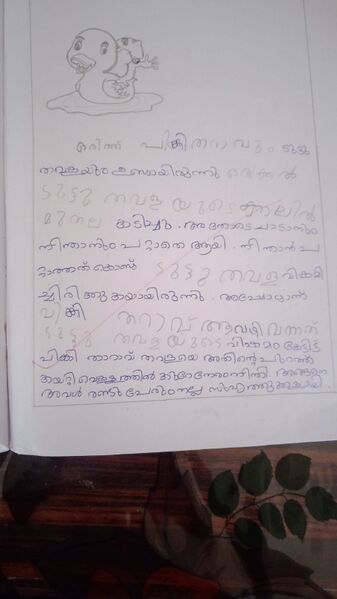 ഒരിടത്ത് പിങ്കി താറാവും ടുട്ടു
തവളയും ഉണ്ടായിരുന്നു ഒരിക്കൽ
ടുട്ടു തവള യുടെ കാലിൽ
മുതല കടിച്ചു. അതോടെ ചാടാനും
നീന്താനും പറ്റാതെ ആയി. നീന്താൻ പ
റ്റാത്തത് കൊണ്ട് ടുട്ടു തവള വിഷമി
ച്ചിരിക്കുകയായിരുന്നു. അപ്പോഴാണ്
പിങ്കി താറാവ് ആ വഴി വന്നത്
ടുട്ടു തവള യുടെ വിഷമം കേട്ട്
പിങ്കി താറാവ് തവളയെ അതിന്റെ പുറത്ത്
കയറ്റി വെള്ളത്തിൽ നീന്തി. അങ്ങനെ
അവർ രണ്ടു പേരും നല്ല സുഹൃത്തുക്കളായി.